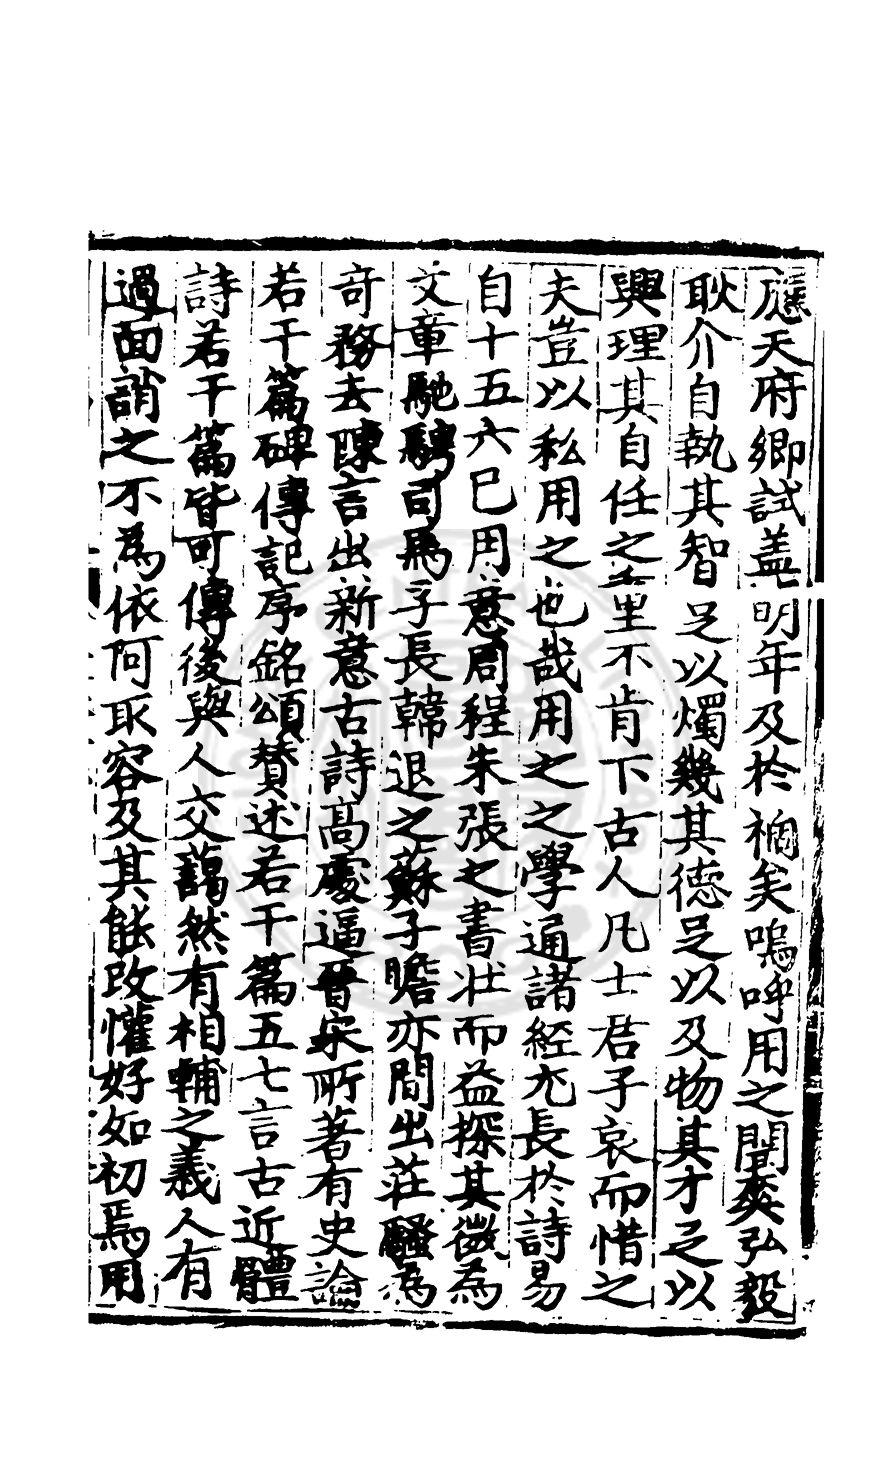 應天府鄉試盖明年及於禍矣嗚呼用之闓爽弘毅
耿介自執其智足以燭幾其德足以及物其才足以
興理其自任之重不肯下古人凡士君子哀而惜之
夫豈以私用之也哉用之之學通諸經尤長於詩易
自十五六已用意周程朱張之書壯而益探其微為
文章馳騁司馬子長韓退之蘇子瞻亦間出莊騷為
奇務去陳言出新意古詩高處逼晉宋所著有史論
若干篇碑傳記序銘頌贊述若干篇五七言古近體
詩若干篇皆可傳後與人交藹然有相輔之義人有
過面誚之不為依阿取容及其能改懽好如初焉用